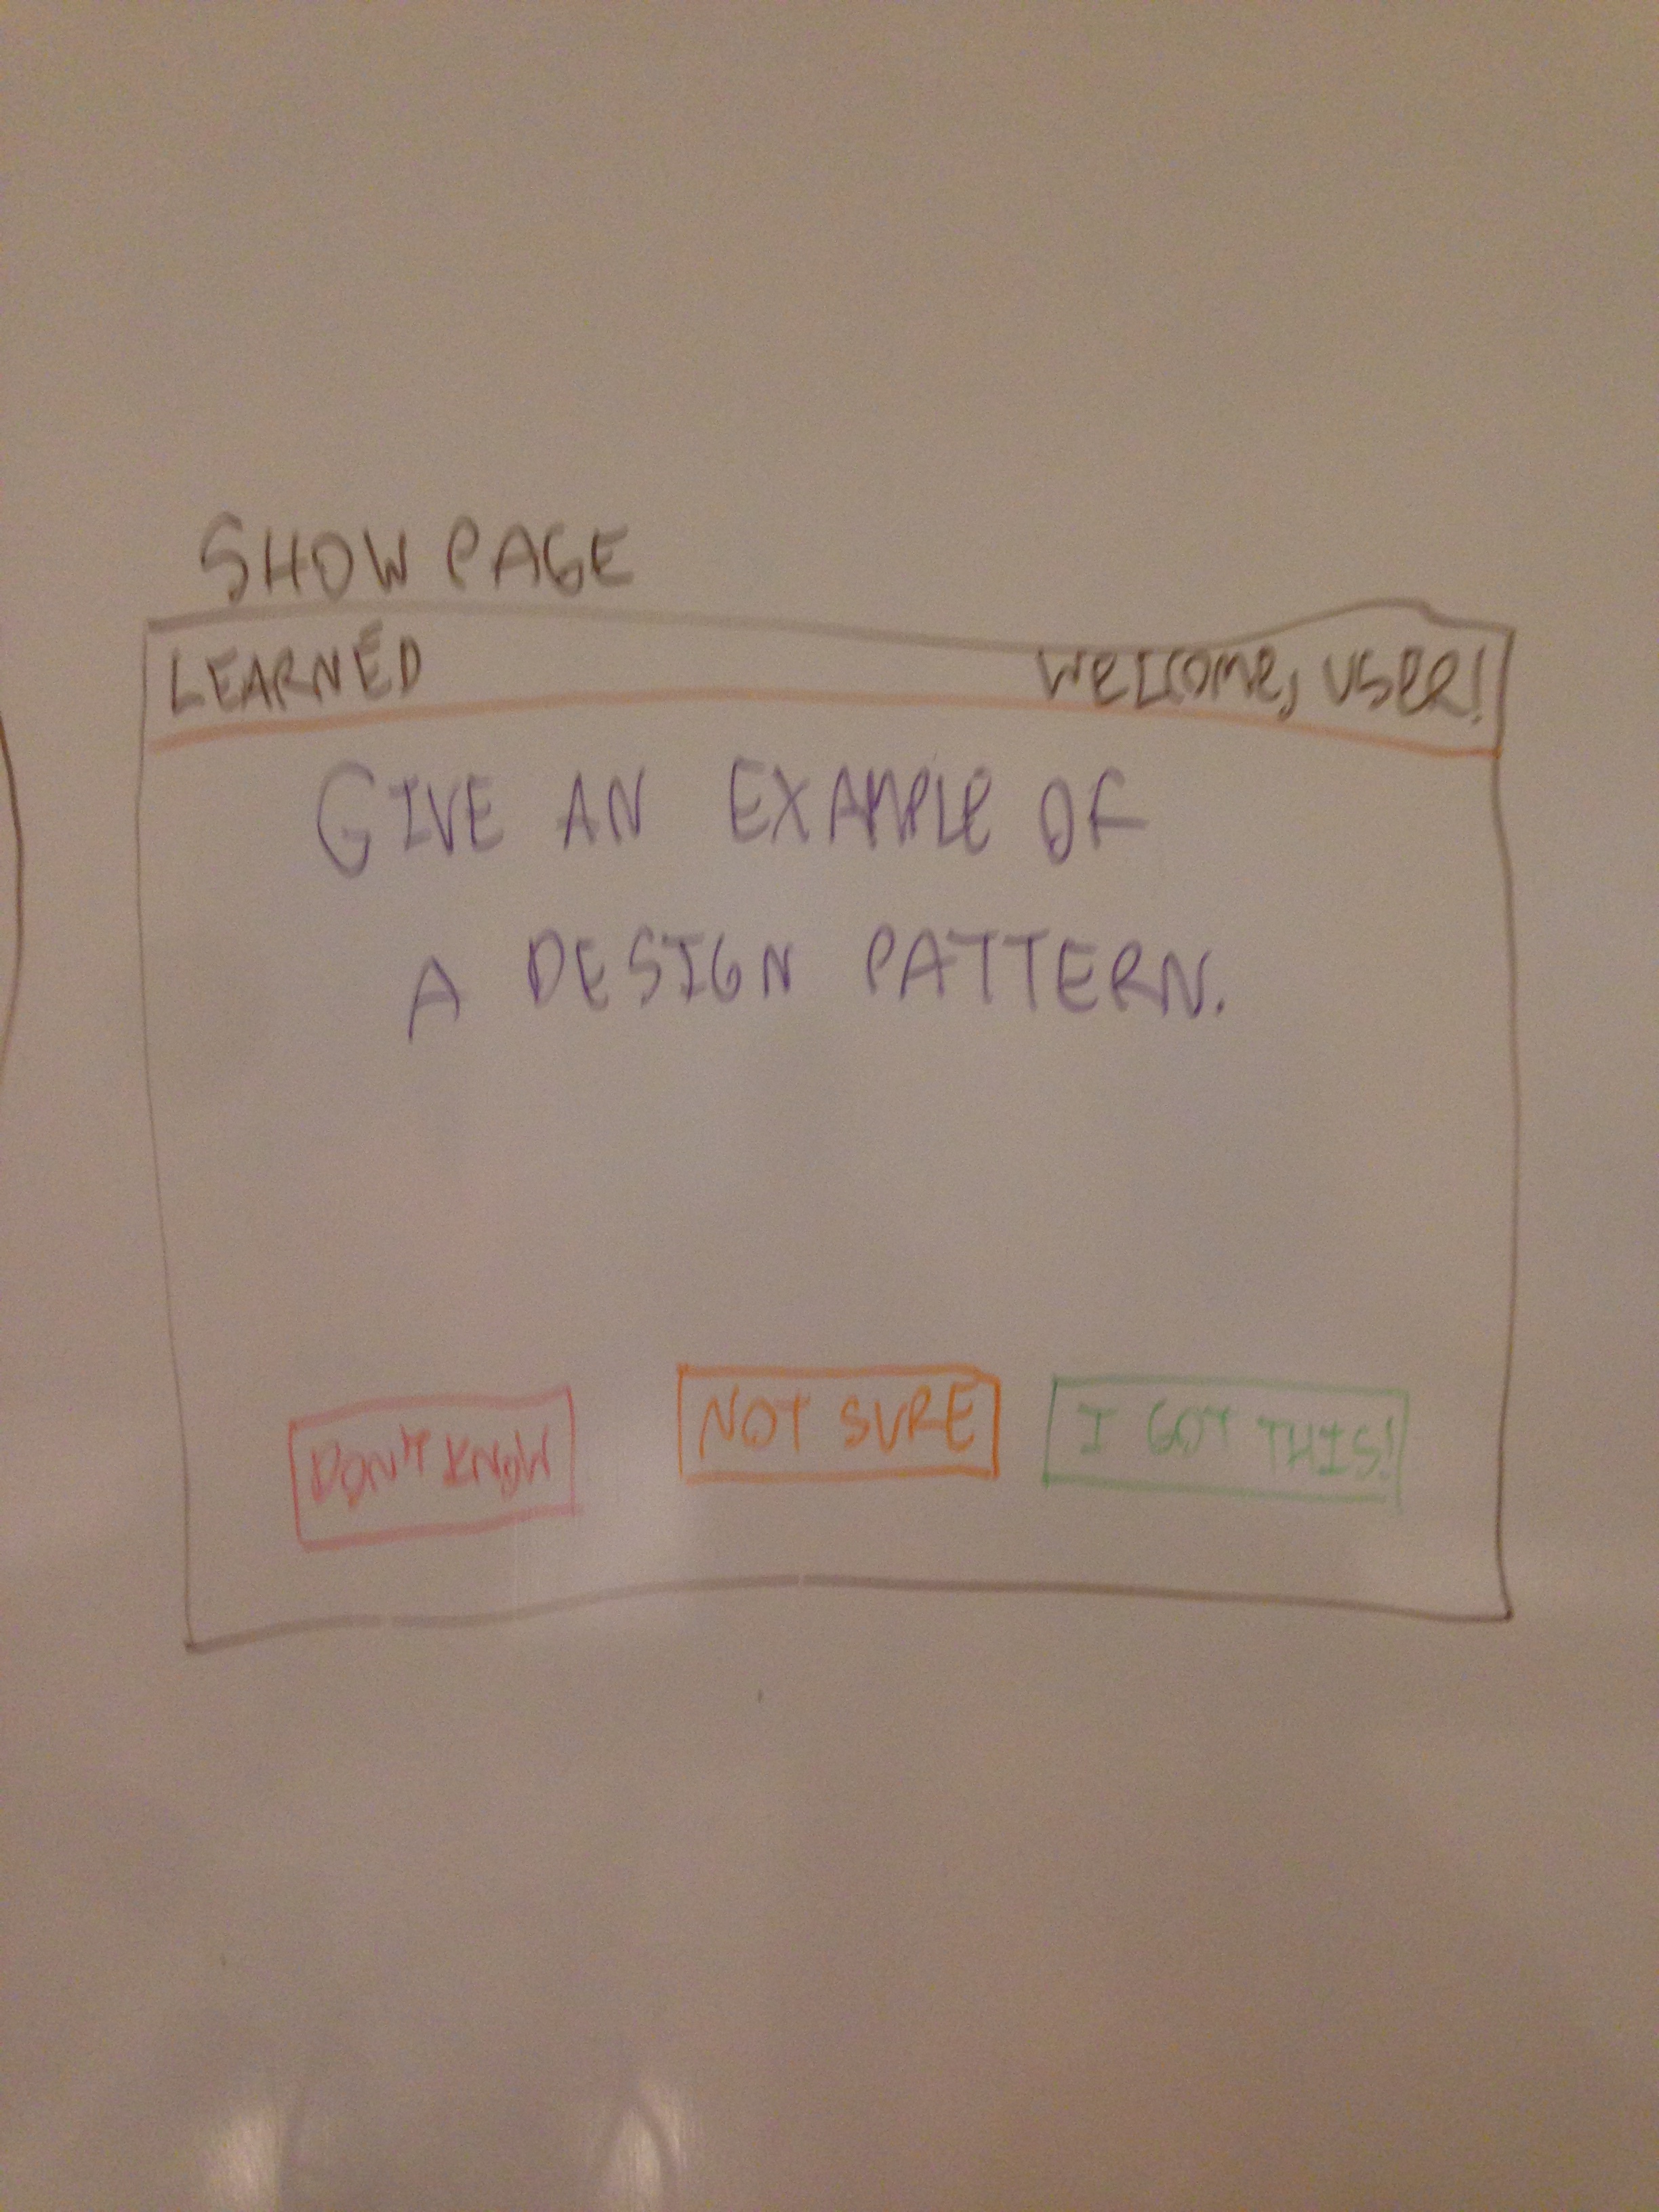 SHOW PAGE
LEARNED
WELCOME, USER!
GIVE AN EXAMPLE OF
A DESIGN PATTERN.
DON'T KNOW
NOT SURE
I GOT THIS!